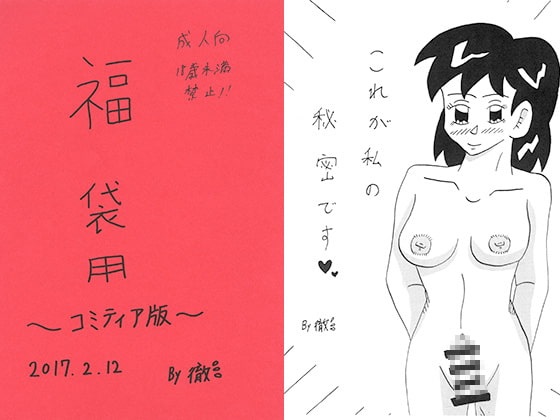 成人向
18歳未満
禁止!!
福
袋
用
～コミティア版～
2017.2.12
By 徹
これが私の
秘密です♥♥
By 徹